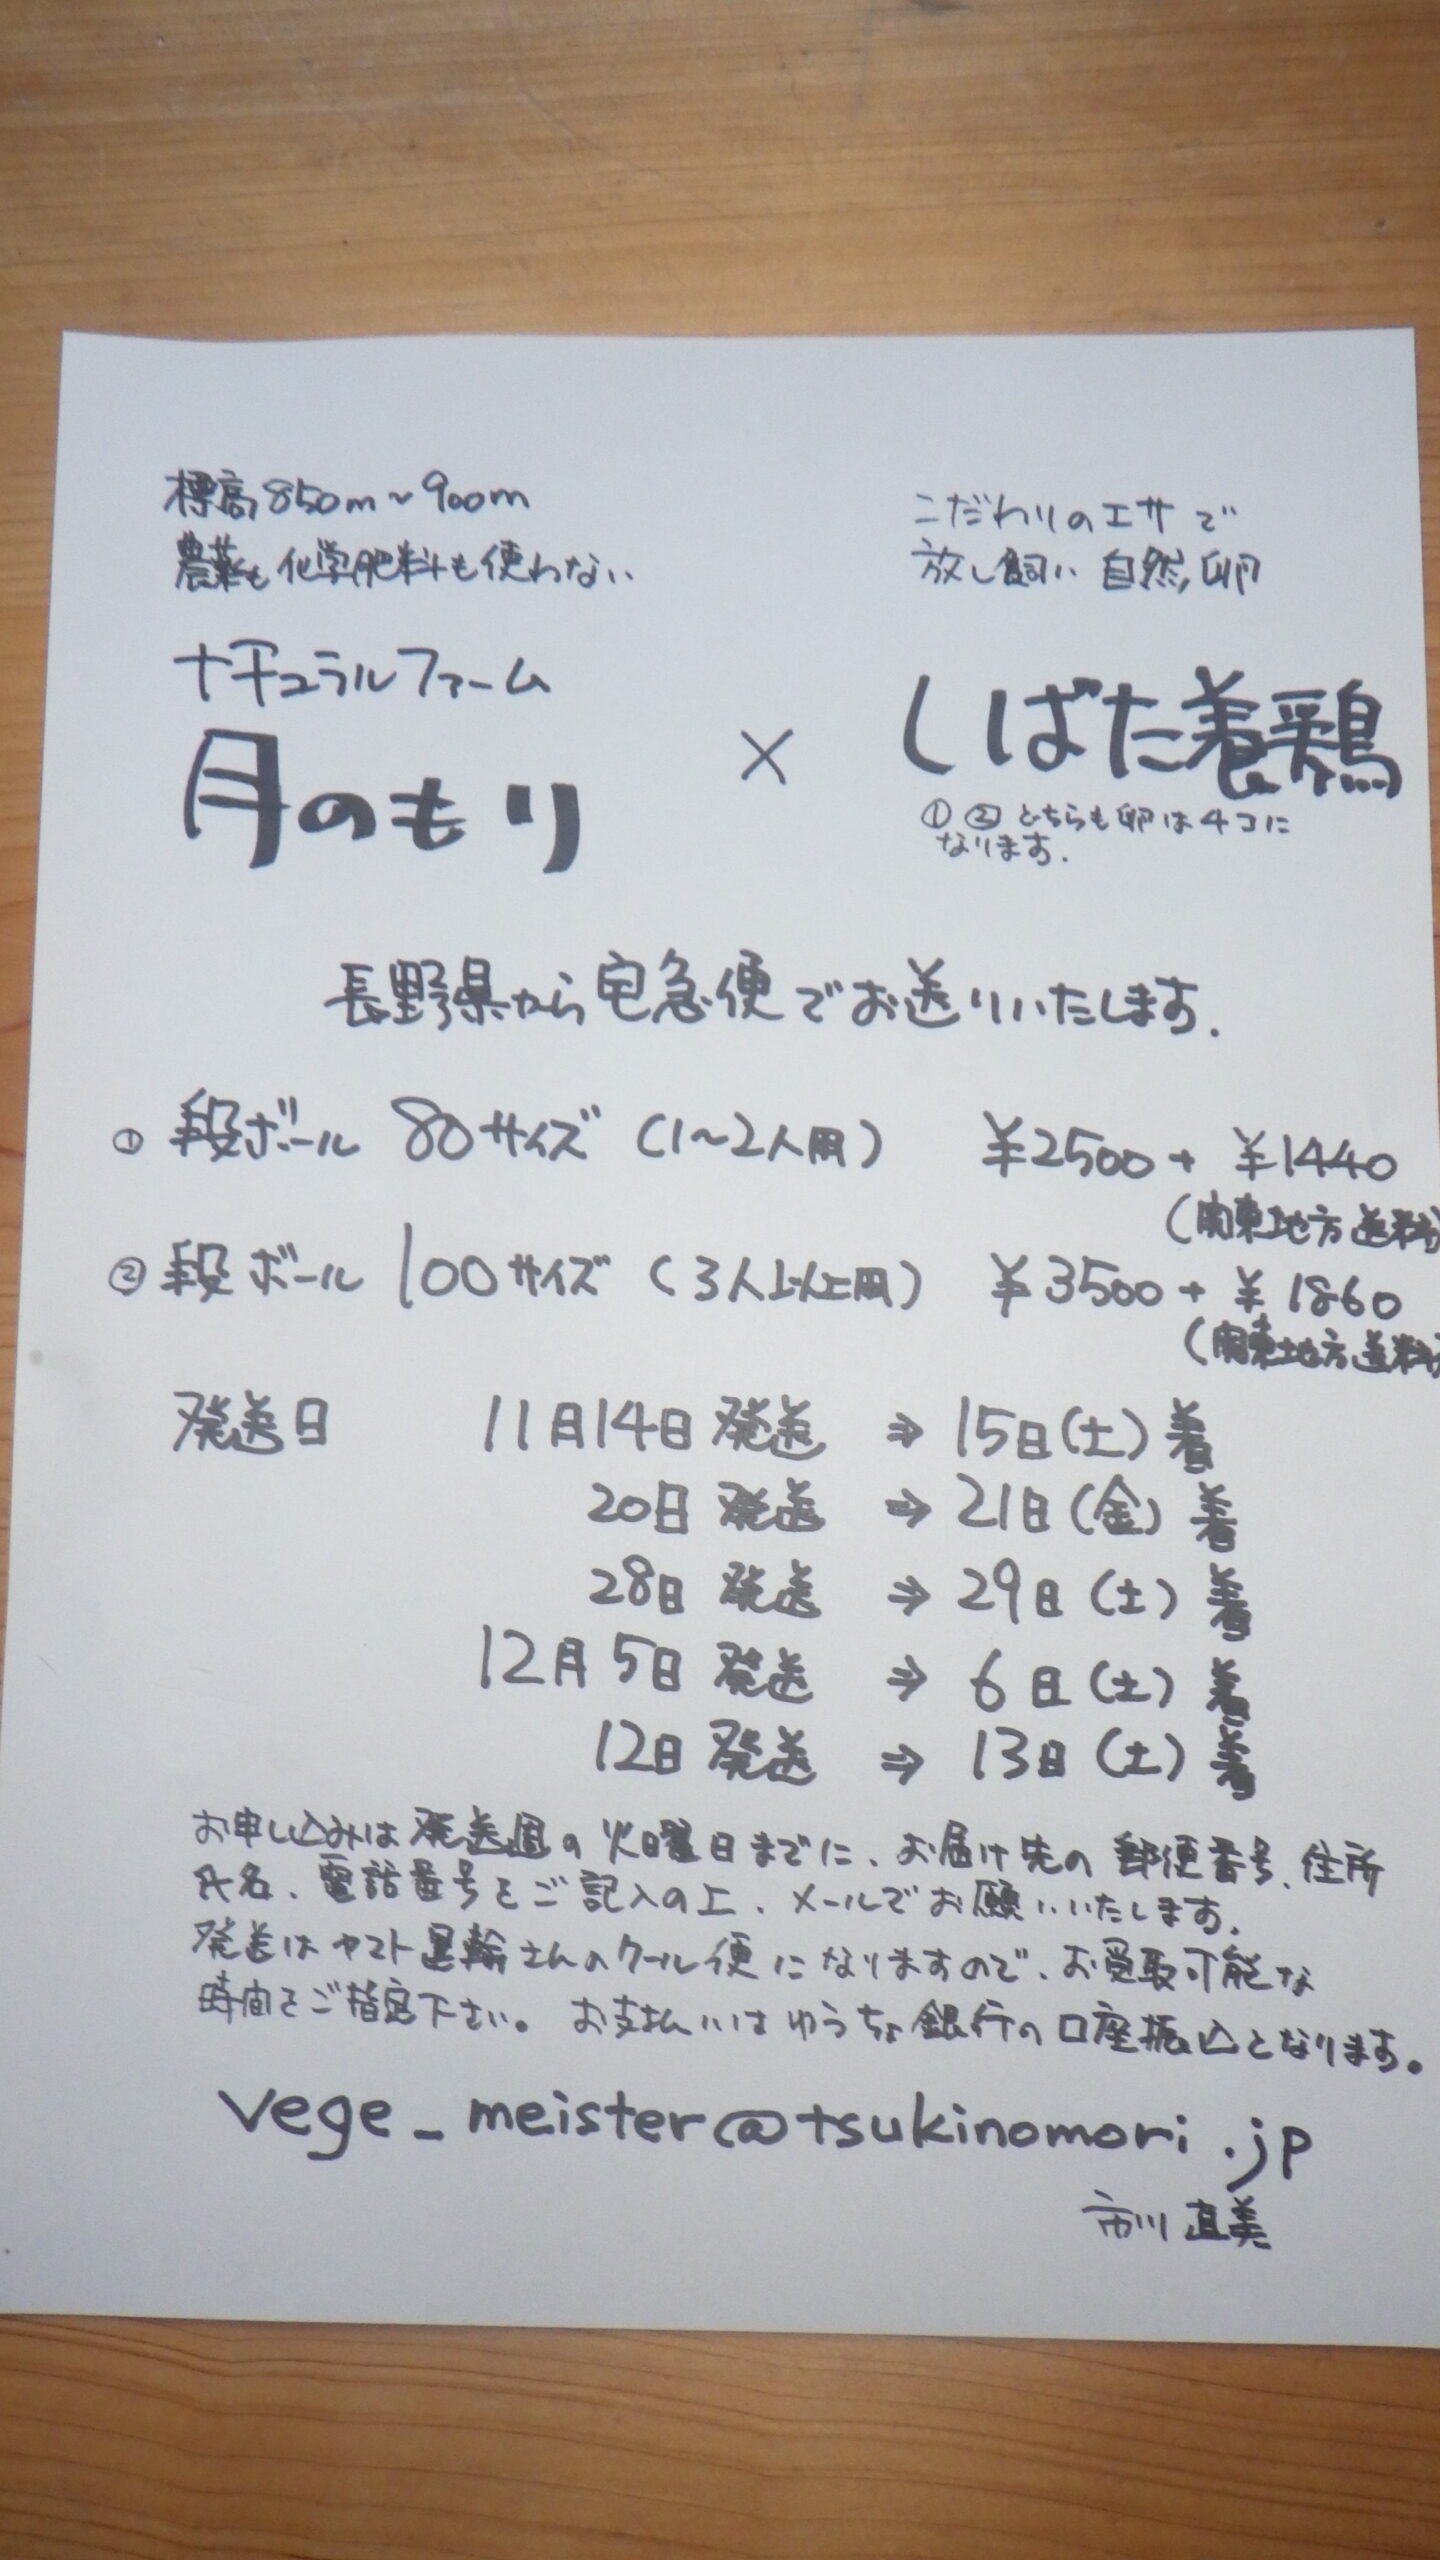 標高850m〜900m
農薬も化学肥料も使わない
ナチュラルファーム
月のもり
×
こだわりのエサで
放し飼い 自然卵
しばた養鶏
①②どちらも卵は4コに
なります.
長野県から宅急便でお送りいたします.
① 段ボール 80サイズ (1〜2人用) ¥2500+ ¥1440
(関東地方送料)
② 段ボール 100サイズ (3人以上用) ¥3500+ ¥1860
(関東地方送料)
発送日 11月14日 発送 ⇒ 15日(土)着
20日 発送 ⇒ 21日(金)着
28日 発送 ⇒ 29日(土)着
12月5日 発送 ⇒ 6日(土)着
12日 発送 ⇒ 13日(土)着
お申し込みは発送週の火曜日までに、お届け先の郵便番号、住所
氏名、電話番号をご記入の上、メールでお願いいたします.
発送はヤマト運輸さんのクール便になりますので、お受取可能な
時間をご指定下さい。お支払いはゆうちょ銀行の口座振込となります。
vege_meister@tsukinomori.jp
市川 直美